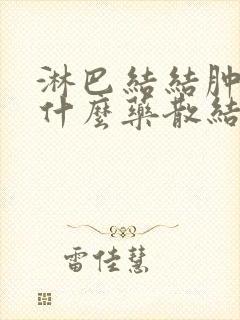 淋巴結結肿
什麼藥散結
雷佳慧